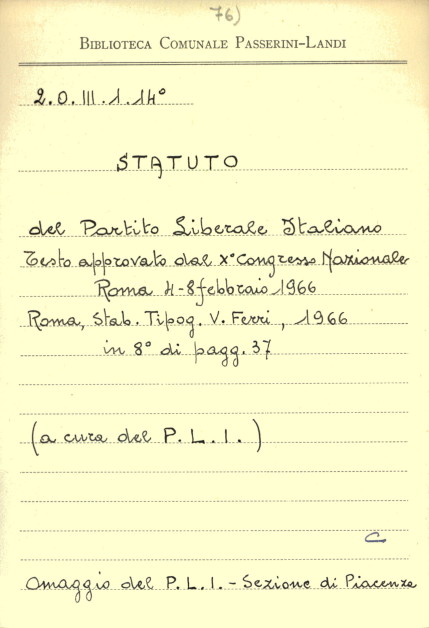 76)
BIBLIOTECA COMUNALE PASSERINI-LANDI
2.O.III.1.14°
STATUTO
del Partito Liberale Italiano
Testo approvato dal X° Congresso Nazionale
Roma 4-8 febbraio 1966
Roma, Stab. Tipog. V. Ferri, 1966
in 8° di pagg. 37
(a cura del P.L.I.)
C
Omaggio del P.L.I. - Sezione di Piacenza